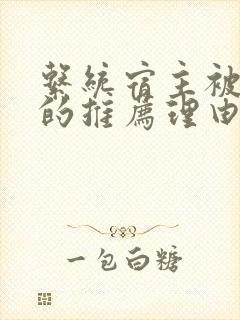 繫統宿主被
的推薦理由
一包白糖